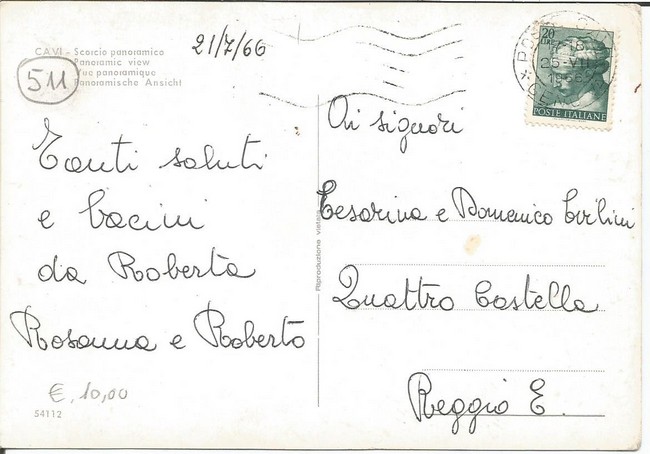 CAVI - Scorcio panoramico
Panoramic view
Vue panoramique
Panoramische Ansicht
511
21/7/66
20
LIRE
25-VII
1966
POSTE ITALIANE
Tanti saluti
e bacini
da Roberta
Rosanna e Roberto
Ai signori
Cesarina e Domenico
Quattro Castella
Reggio E.
Riproduzione vietata
€. 10,00
54112